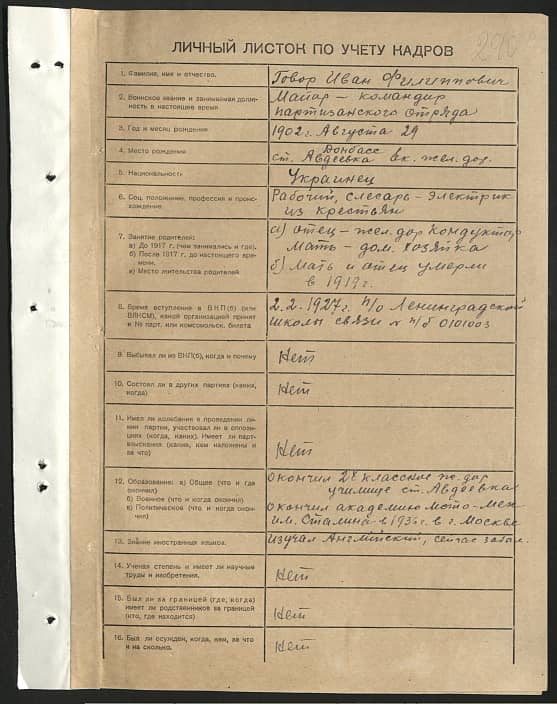 290
ЛИЧНЫЙ ЛИСТОК ПО УЧЕТУ КАДРОВ
1. Фамилия, имя и отчество.
Говор Иван Филиппович
2. Воинское звание и занимаемая долж-
ность в настоящее время
Майор – командир
партизанского отряда
3. Год и месяц рождения
1902 г. Августа 29
4. Место рождения
Донбасс
ст. Авдеевка вк. жел. дор.
5. Национальность
Украинец
6. Соц. положение, профессия и проис-
хождение.
Рабочий, слесарь – электрик
из крестьян
7. Занятие родителей:
а) До 1917 г. (чем занимались и где).
б) После 1917 г. до настоящего вре-
мени.
в) Место жительства родителей
а) отец – жел. дор кондуктор
Мать – дом. хозяйка
б) Мать и отец умерли
в 1919 г.
8. Время вступления в ВКП(б) (или
ВЛКСМ), какой организацией принят
и № парт. или комсомольск. билета
2. 2. 1927 г. п/о Ленинградской
школы связи № п/б 0101003
9. Выбывал ли из ВКП(б), когда и почему
Нет
10. Состоял ли в других партиях (каких,
когда)
Нет
11. Имел ли колебания в проведении ли-
нии партии, участвовал ли в оппози-
циях (когда, каких). Имеет ли парт-
взыскания (какие, кем наложены и
за что)
Нет
12. Образование: а) Общее (что и где
окончил)
б) Военное (что и когда окончил)
в) Политическое (что и когда окон-
чил)
окончил 2х классное же. дор
училище ст. Авдеевка
окончил академию Мото-мех
им. Сталина в 1936 г. в г. Москва
13. Знание иностранных языков.
Изучал Английский, сейчас забыл.
14. Ученая степень и имеет ли научные
труды и изобретения.
Нет
15. Был ли за границей (где, когда)
имеет ли родственников за границей
(кто, где находится)
Нет
16. Был ли осужден, когда, кем, за что
и на сколько.
Нет